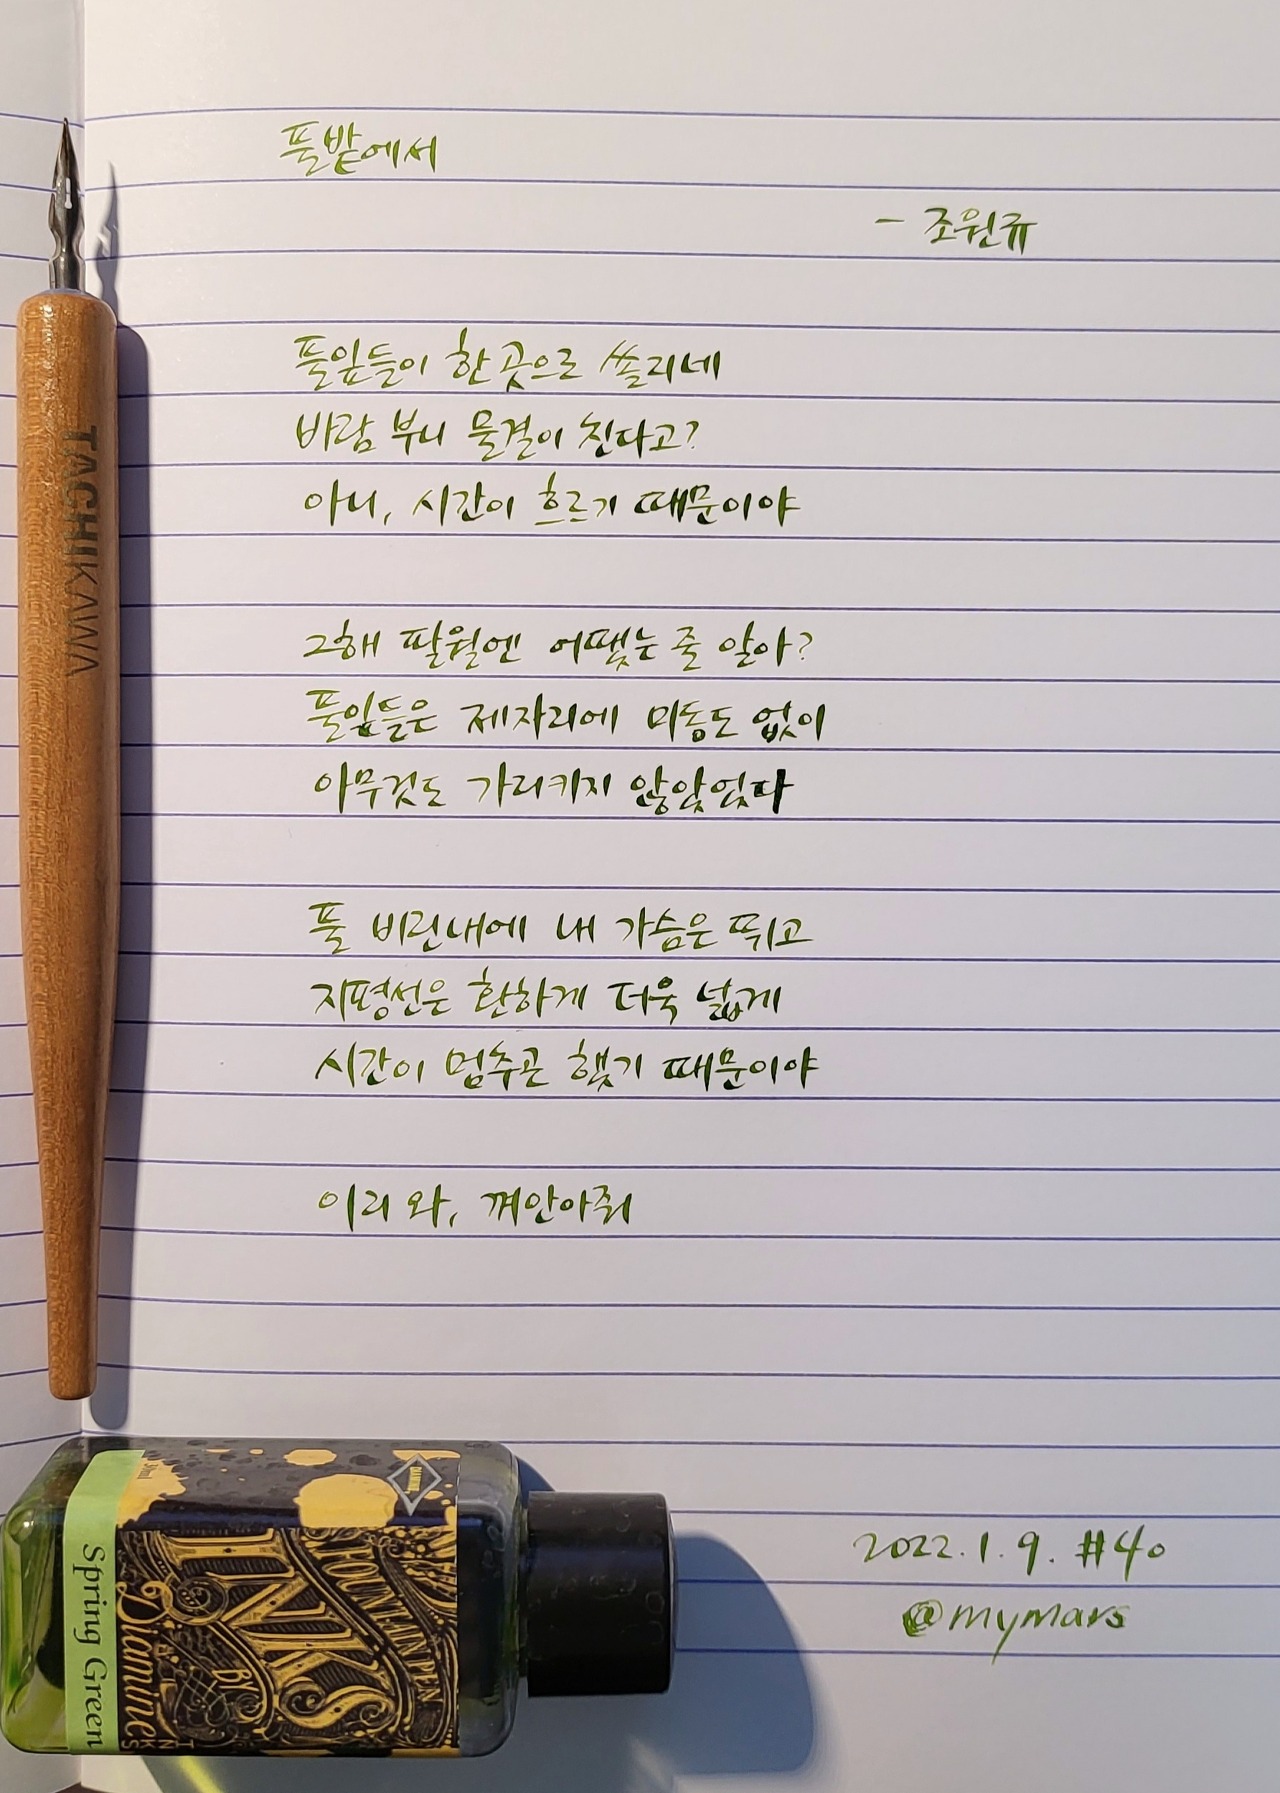 풀밭에서
- 조원규
풀잎들이 한 곳으로 쏠리네
바람 부니 물결이 친다고?
아니, 시간이 흐르기 때문이야
그해 팔월엔 어땠는 줄 알아?
풀잎들은 제자리에 미동도 없이
아무것도 가리키지 않았었다
풀 비린내에 내 가슴은 뛰고
지평선은 환하게 더욱 넓게
시간이 멈추곤 했기 때문이야
이리 와, 껴안아줘
2022.1.9. #40
@mymars
TACHIKAWA
30ml
DIAMINE
FOUNTAIN PEN
INKS
BY
Diamine
INKS
Spring Green